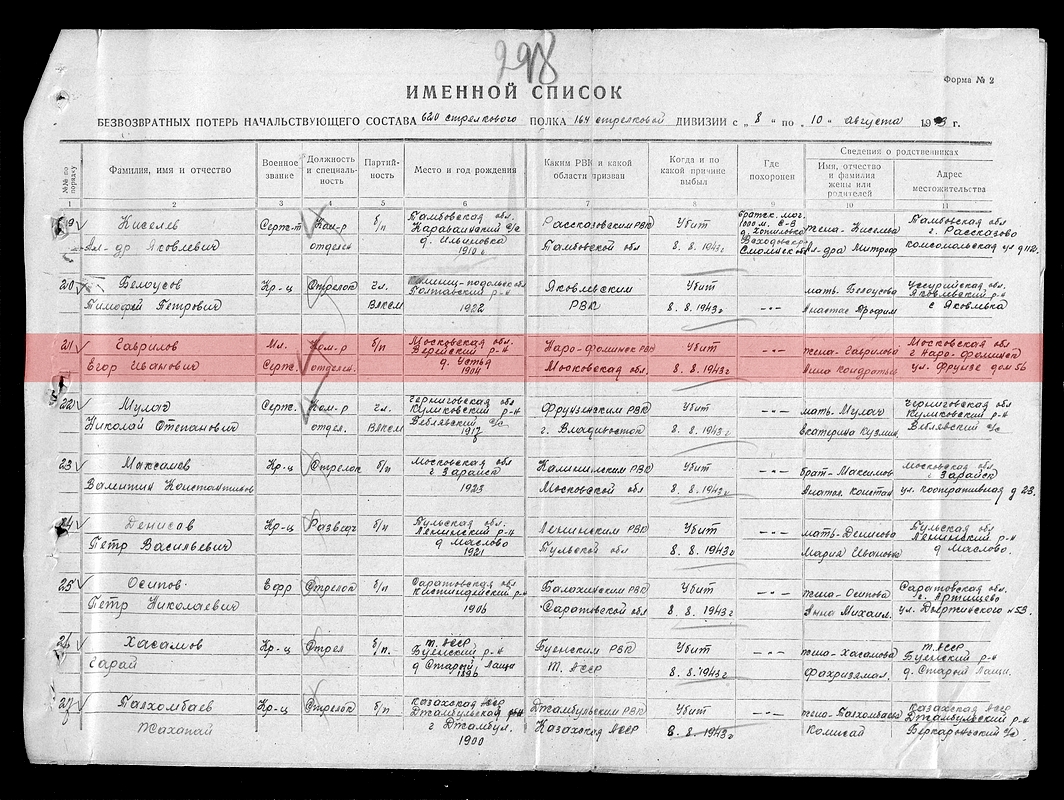 298
Форма № 2
ИМЕННОЙ СПИСОК
БЕЗВОЗВРАТНЫХ ПОТЕРЬ НАЧАЛЬСТВУЮЩЕГО СОСТАВА 620 стрелкового ПОЛКА 164 стрелковой ДИВИЗИИ с „ 8 “ по „ 10 “ августа 1943 г.
№№ по порядку Фамилия, имя и отчество Военное звание Должность и специальность Партийность Место и год рождения Каким РВК и какой области призван Когда и по какой причине выбыл Где похоронен Сведения о родственниках
Имя, отчество и фамилия жены или родителей Адрес местожительства
1 2 3 4 5 6 7 8 9 10 11
19 Киселев Серж-т Ком-р б/п Тамбовская обл. Рассказовским РВК Убит Братск. мог. жена-Киселева Тамбовская обл.
Ал-др Яковлевич отделен. Караваинский с/с д. Ильиновка 1910 г. Тамбовской обл 8. 8. 1943г 1000 м. С-В Смоленской Ал-дра Митроф г. Рассказово Комсомольская ул
20 Белоусов Кр-ц Стрелок чл. Яковлевским Убит мать. Белоусова Уссурийская обл.
Тимофей Петрович ВЛКСМ 1922 РВК 8. 8. 1943г Анастас Трофим Яковлевский р-н с Яковлевка
21 Гаврилов Мл. Ком-р б/п Московская обл. Наро-фоминск РВК Убит -"- жена-Гаврилова Московская обл
Егор Иванович Серж. отделен. Верейский р-н д. Устье 1904 Московской обл. 8. 8. 1943г Анна Кондратьев г Наро-Фоминск ул. Фрунзе дом 56
22 Мулач Серж. Ком-р чл. Черниговская обл Фрунзенским РВК Убит -"- мать. Мулач Черниговская обл.
Николай Степанович отдел. ВЛКСМ Куликовский р-н 1917 г. Владивосток 8. 8. 1943г Екатерина Кузмин. Куликовский р-н
23 Максимов Кр-ц Стрелок б/п Московская обл Калининским РВК Убит -"- брат-Максимов Московская обл.
Валентин Константинов г Зарайск 1923 Московской обл 8. 8. 1943г Анатол Констан г Зарайск ул. Кооперативная д 23.
24 Денисов Кр-ц Разведч б/п Тульская обл. Ленинским РВК Убит -"- мать-Денисова Тульская обл.
Петр Васильевич Ленинский р-н д Маслово 1921 Тульской обл 8. 8. 1943г Мария Ивановн Ленинский р-н д Маслово.
25 Осипов Ефр Стрелок б/п Саратовская обл Убит -"- жена-Осипова Саратовская обл.
Петр Николаевич 1906 Саратовской обл 8. 8. 1943г Анна Михаил. ул. Дзержинского №53.
26 Хасамов Кр-ц Стрел б/п. Т. АССР Буенским РВК Убит -"- жена-Хасамова Т. АССР
Гарай Буенский р-н д Старый Лаща 1896 Т. АССР 8. 8. 1943г Фахризямал. Буенский р-н д. Старый Лаща.
27 Палхомбаев Кр-ц Стрелок б/п Казахская АССР Джамбульским РВК Убит -"- жена-Палхомбаева Казахская АССР
Жахапай Джамбульская г Джамбул. 1900 Казахской АССР 8. 8. 1943г Комисай Джамбульский р-н